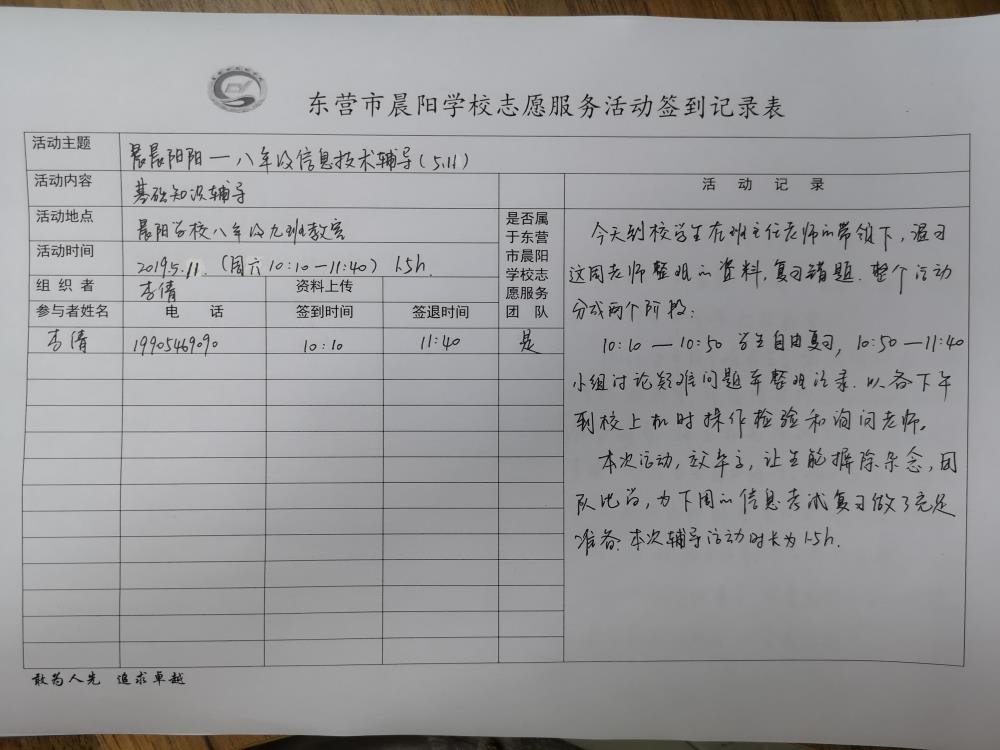 东营市晨阳学校志愿服务活动签到记录表
活动主题 晨晨阳阳一八年级信息技术辅导(5.11)
活动内容 基础知识辅导
活动地点 晨阳学校八年级九班教室
活动时间 2019.5.11.(周六10:10—11:40) 1.5h.
组织者 李倩 资料上传
是否属
于东营
市晨阳
学校志
愿服务
团队
参与者姓名 电话 签到时间 签退时间
李倩 1990546909０ 10:10 11:40 是
活动记录
今天到校学生在班主任老师的带领下,温习
这周老师整理的资料,复习错题.整个活动
分成两个阶段:
10:10—10:50 学生自由复习, 10:50—11:40
小组讨论疑难问题并整理记录.以备下午
到校上机时操作检验和询问老师。
本次活动,效率高,让生能摒除杂念,团
队比学,为下周的信息考试复习做了充足
准备.本次辅导活动时长为1.5h.
敢为人先 追求卓越